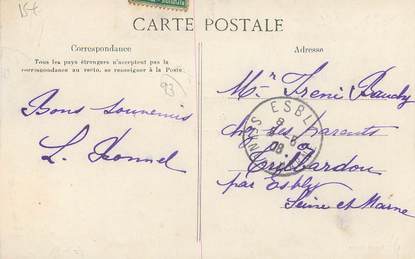 15f
CARTE POSTALE
Correspondance
Tous les pays étrangers n'acceptent pas la
correspondance au recto, se renseigner à la Poste.
93
Bons souvenirs
L.
Adresse
Mr Iréni Baudry
chez ses parents
à
Trilbardou
par Esbly
Seine et Marne
ESBLY
8
08